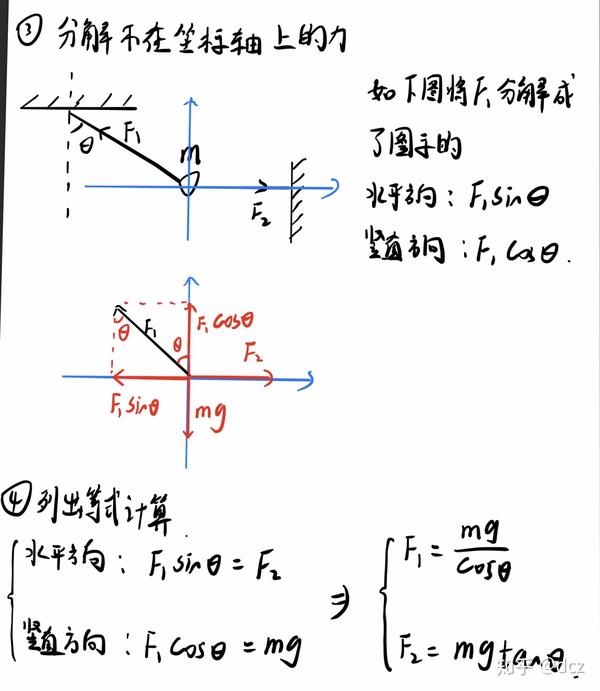 ③ 分解不在坐标轴上的力
如下图将F₁分解成
了图示的
水平方向：F₁sinθ
竖直方向：F₁cosθ.
θ F₁ m
F₂
F₁cosθ
θ F₁ θ F₂
F₁sinθ mg
④列出等式计算
水平方向：F₁sinθ = F₂
竖直方向：F₁cosθ = mg
⇒
F₁ = mg/cosθ
F₂ = mgtanθ.
知乎 @dcz